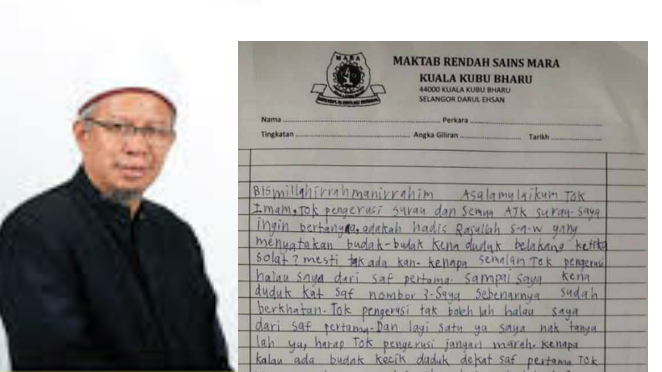 MARA
MAKTAB RENDAH SAINS MARA
KUALA KUBU BHARU
44000 KUALA KUBU BHARU
SELANGOR DARUL EHSAN
Nama ........ Perkara ........
Tingkatan ........ Angka Giliran ........ Tarikh ........
Bismillahirrahmanirrahim Asalamulaikum Tok
Imam, Tok pengerusi surau dan Semua AJK surau. Saya
ingin bertanya, adakah hadis Rasullah S.a.w yang
menyatakan budak-budak kena duduk belakang ketika
solat? mesti tak ada kan. kenapa semalam Tok pengerusi
halau saya dari saf pertama. Sampai saya kena
duduk kat saf nombor 3. Saya sebenarnya sudah
berkhatan. Tok pengerusi tak boleh lah halau saya
dari saf pertama. Dan lagi satu ya saya nak tanya
lah ya, harap Tok pengerusi jangan marah. kenapa
kalau ada budak kecik duduk dekat saf pertama Tok